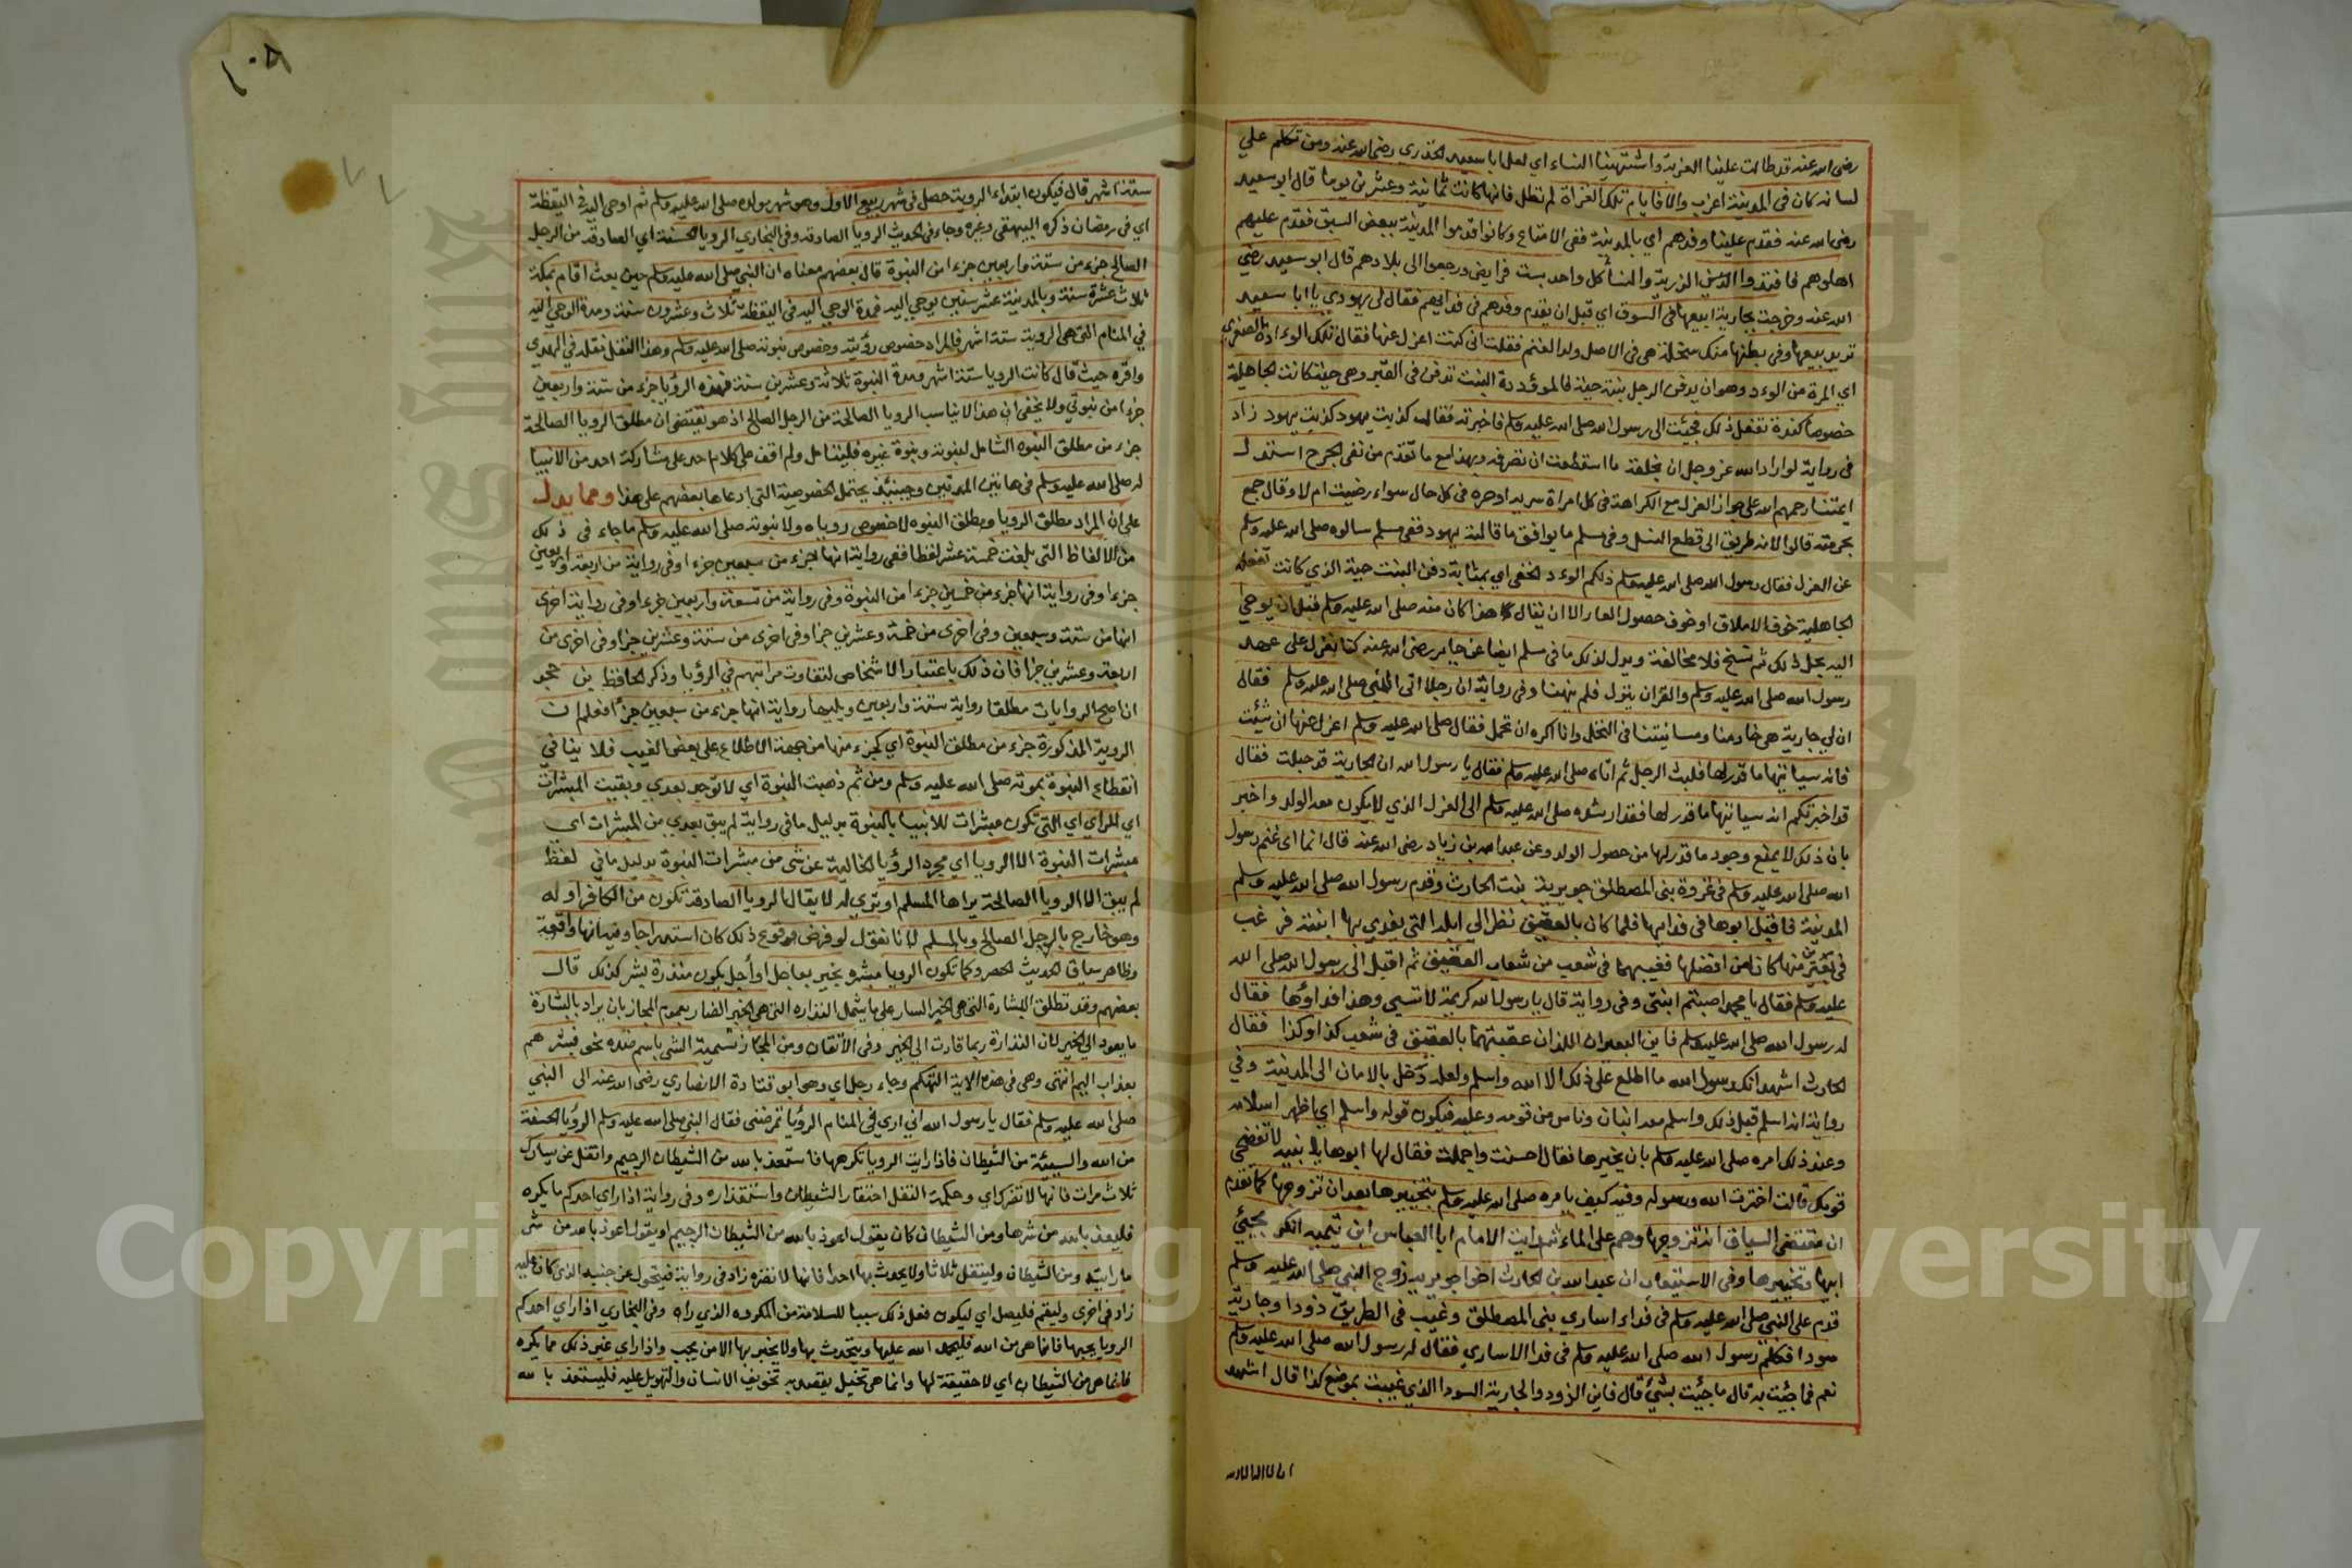 رضى الله عنه قد طالت علينا العزبة واشتهينا النساء اي لعل ابا سعيد الخدري رضى الله عنه ومن تكلم علي
لسانه كان فى المدينة اعزب والا فايام تلك الغزاة لم تطل فانها كانت ثمانية وعشرين يوما قال ابو سعيد
رضى الله عنه فقدم علينا وفدهم اي بالمدينة ففى الامتاع وكانوا قدموا المدينة ببعض السبى فقدم عليهم
اهلوهم فافتدوا الذرية والنسا كل واحد بست فرايض ورجعوا الى بلادهم قال ابو سعيد رضي
الله عنه وخرجت بجارية ابيعها فى السوق اي قبل ان يقدم وفدهم فى فدايهم فقال لى يهودي يا ابا سعيد
تريد بيعها وفى بطنها منك سخلة هى فى الاصل ولد الغنم فقلت انى كنت اعزل عنها فقال تلك الوءادة الصغرى
اي المرة من الوءد وهو ان يدفن الرجل بنته حية فالموؤدة البنت تدفن فى القبر وهى حية كانت الجاهلية
خصوصا كندة تفعل ذلك فجئت الى رسول الله صلى الله عليه وسلم فاخبرته فقال كذبت يهود كذبت يهود زاد
فى رواية لو اراد الله عز وجل ان يخلقه ما استطعت ان تصرفه وبهذا مع ما تقدم من نفى الحرج استدل
ايمتنا رحمهم الله على جواز العزل مع الكراهة فى كل امراة سرية او حرة فى كل حال سواء رضيت ام لا وقال جمع
بحرمته قالوا لانه طريق الى قطع النسل وفى مسلم ما يوافق ما قالته يهود ففى مسلم سالوه صلى الله عليه وسلم
عن العزل فقال رسول الله صلى الله عليه وسلم ذلكم الوءد الخفى اي بمثابة دفن البنت حية الذي كانت تفعله
الجاهلية خوف الاملاق او خوف حصول العار الا ان يقال هذا كان منه صلى الله عليه وسلم قبل ان يوحى
اليه بحل ذلك ثم نسخ فلا مخالفة ويدل لذلك ما فى مسلم ايضا عن جابر رضى الله عنه كنا نعزل على عهد
رسول الله صلى الله عليه وسلم والقران ينزل فلم ينهنا وفى رواية ان رجلا اتى النبي صلى الله عليه وسلم فقال
ان لي جارية هى خادمنا وسانيتنا فى النخل وانا اكره ان تحمل فقال صلى الله عليه وسلم اعزل عنها ان شئت
فانه سياتيها ما قدر لها فلبث الرجل ثم اتاه صلى الله عليه وسلم فقال يا رسول الله ان الجارية قد حبلت فقال
قد اخبرتكم انه سياتيها ما قدر لها فقد ارشده صلى الله عليه وسلم الى العزل الذي لا يكون معه الولد واخبر
بان ذلك لا يمنع وجود ما قدر لها من حصول الولد وعن عبد الله بن زياد رضى الله عنه قال انما اى غنم رسول
الله صلى الله عليه وسلم فى غزوة بنى المصطلق جويرية بنت الحارث وقدم رسول الله صلى الله عليه وسلم
المدينة فاقبل ابوها فى فدايها فلما كان بالعقيق نظر الى ابله التى يفدي بها ابنته فرغب
فى بعيرين منها كانا من افضلها فغيبهما فى شعب من شعاب العقيق ثم اقبل الى رسول الله صلى الله
عليه وسلم فقال يا محمد اصبتم ابنتى وفى رواية قال يا رسول الله كريمة لا تسبى وهذا فداؤها فقال
له رسول الله صلى الله عليه وسلم فاين البعيران اللذان عقبتهما بالعقيق فى شعب كذا وكذا فقال
الحارث اشهد انك رسول الله ما اطلع على ذلك الا الله واسلم ولعله دخل بالامان الى المدينة وفي
رواية انه اسلم قبل ذلك واسلم معه ابنان وناس من قومه وعليه فيكون قوله واسلم اي اظهر اسلامه
وعند ذلك امره صلى الله عليه وسلم بان يخيرها فقال احسنت واجملت فقال لها ابوها يا بنيه لا تفضحى
قومك قالت اخترت الله ورسوله وفيه كيف يامره صلى الله عليه وسلم بتخييرها بعد ان تزوجها كما تقدم
ان مقتضى السياق انه تزوجها وهم على الماء ثم رايت الامام ابا العباس ابن تيميه انكر مجيئ
ابيها وتخييرها وفى الاستيعاب ان عبد الله بن الحارث اخا جويرية زوج النبي صلى الله عليه وسلم
قدم على النبي صلى الله عليه وسلم فى فداء اساري بنى المصطلق وغيب فى الطريق ذودا وجارية
سودا فكلم رسول الله صلى الله عليه وسلم فى فدا الاساري فقال له رسول الله صلى الله عليه وسلم
نعم فما جئت به قال ما جئت بشئ قال فاين الزود والجارية السودا الذي غيبت بموضع كذا قال اشهد
ان لا اله الا الله
١٠٨
ستة اشهر قال فيكون ابتداء الروية حصل فى شهر ربيع الاول وهو شهر مولده صلى الله عليه وسلم ثم اوحى اليه فى اليقظة
اي فى رمضان ذكره البيهقى وغيره وجاء فى الحديث الرويا الصادقه وفى البخاري الرويا الحسنة اي الصادقه من الرجل
الصالح جزء من ستة واربعين جزءا من النبوة قال بعضهم معناه ان النبي صلى الله عليه وسلم حين بعث اقام بمكة
ثلاث عشرة سنة وبالمدينة عشر سنين يوحي اليه فمدة الوحي اليه فى اليقظة ثلاث وعشرون سنة ومدة الوحي اليه
في المنام التى هى الروية ستة اشهر فالمراد خصوص رؤيته وخصوص نبوته صلى الله عليه وسلم وهذا النقل نقله فى الهدي
واقره حيث قال كانت الرويا ستة اشهر ومدة النبوة ثلاثة وعشرين سنة فهذه الرؤيا جزء من ستة واربعين
جزءا من نبوتي ولا يخفى ان هذا لا يناسب الرويا الصالحة من الرجل الصالح اذ هو يقتضى ان مطلق الرويا الصالحة
جزء من مطلق النبوه الشامل لنبوته ونبوة غيره فليتامل ولم اقف على كلام احد على مشاركة احد من الانبيا
له صلى الله عليه وسلم فى هاتين المدتين وحينئذ يحتمل الخصوصية التى ادعاها بعضهم على هذا ومما يدل
على ان المراد مطلق الرويا ومطلق النبوه لا خصوص روياه ولا نبوته صلى الله عليه وسلم ما جاء فى ذلك
من الالفاظ التى بلغت خمسة عشر لفظا ففى رواية انها جزء من سبعين جزءا وفى رواية من اربعة واربعين
جزءا وفى رواية انها جزء من خمسين جزءا من النبوة وفى رواية من تسعة واربعين جزءا وفى رواية اخرى
انها من ستة وسبعين وفى اخرى من خمسة وعشرين جزا وفى اخرى من ستة وعشرين جزا وفى اخرى من
اربعة وعشرين جزا فان ذلك باعتبار الاشخاص لتفاوت مراتبهم في الرؤيا وذكر الحافظ بن حجر
ان اصح الروايات مطلقا رواية ستة واربعين ويليها رواية انها جزء من سبعين جزأ فعلم ان
الروية المذكورة جزء من مطلق النبوة اي كجزء منها من جهة الاطلاع على بعض الغيب فلا ينافي
انقطاع النبوة بموته صلى الله عليه وسلم ومن ثم ذهبت النبوة اي لا توجد بعدي وبقيت المبشرات
اي المراي اي التى تكون مبشرات للانبيا بالنبوة بدليل ما فى رواية لم يبق بعدي من المبشرات اي
مبشرات النبوة الا الرويا اي مجرد الرؤيا الخالية عن شى من مبشرات النبوة بدليل ما في لفظ
لم يبق الا الرويا الصالحة يراها المسلم او تري له لا يقال الرويا الصادقة تكون من الكافر او له
وهو خارج بالرجل الصالح وبالمسلم لانا نقول لو فرض وقوع ذلك كان استدراجا وفيه انها واقعة
وظاهر سياق الحديث الحصر وكما تكون الرويا مبشره بخير بعاجل او أجل يكون منذرة بشر كذلك قال
بعضهم وقد تطلق البشارة التى هى الخبر السار على ما يشمل النذاره التى هى الخبر الضار بعموم المجاز بان يراد بالبشارة
ما يعود الى الخير لان النذارة ربما قادت الى الخير وفى الاتقان ومن المجاز تسمية الشى باسم ضده نحو فبشرهم
بعذاب اليم انتهى وهى فى هذه الاية التهكم وجاء رجل اي وهو ابو قتادة الانصاري رضى الله عنه الى النبي
صلى الله عليه وسلم فقال يا رسول الله انى اري فى المنام الرؤيا تمرضنى فقال النبي صلى الله عليه وسلم الرؤيا الحسنة
من الله والسيئة من الشيطان فاذا رايت الرويا تكرهها فاستعذ بالله من الشيطان الرجيم واتفل عن يسارك
ثلاث مرات فانها لا تضرك اي وحكمة التفل احتقار الشيطان واستقذاره وفى رواية اذا راي احدكم ما يكره
فليعذ بالله من شرها ومن الشيطان كان يقول اعوذ بالله من الشيطان الرجيم او يقول اعوذ بالله من شر
ما رايته ومن الشيطان وليتفل ثلاثا ولا يحدث بها احدا فانها لا تضره زاد فى رواية فيتحول عن جنبه الذي كان عليه
زاد فى اخرى وليقم فليصل اي ليكون فعل ذلك سببا للسلامة من المكروه الذي راه وفى البخاري اذا راي احدكم
الرويا يحبها فانما هى من الله فليحمد الله عليها ويتحدث بها ولا يخبر بها الا من يحب واذا راي غير ذلك مما يكره
فانما هى من الشيطان اي لا حقيقة لها وانما هى تخيل يقصد به تخويف الانسان والتهويل عليه فليستعذ بالله
Copyright © King Saud University